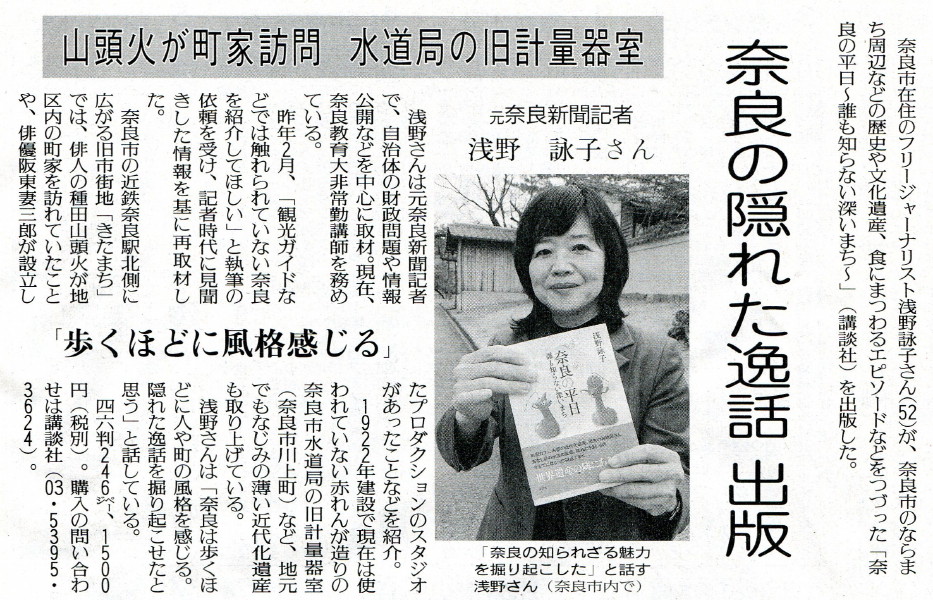 奈良の隠れた逸話 出版
山頭火が町家訪問 水道局の旧計量器室
奈良市在住のフリージャーナリスト浅野詠子さん(52)が、奈良市のならま
ち周辺などの歴史や文化遺産、食にまつわるエピソードなどをつづった「奈
良の平日〜誰も知らない深いまち〜」(講談社)を出版した。
元奈良新聞記者
浅野 詠子さん
浅野詠子
奈良の平日
誰も知らない深いまち
「奈良の知られざる魅力
を掘り起こした」と話す
浅野さん(奈良市内で)
浅野さんは元奈良新聞記者
で、自治体の財政問題や情報
公開などを中心に取材。現在、
奈良教育大非常勤講師を務め
ている。
昨年2月、「観光ガイドな
どでは触れられていない奈良
を紹介してほしい」と執筆の
依頼を受け、記者時代に見聞
きした情報を基に再取材し
た。
奈良市の近鉄奈良駅北側に
広がる旧市街地「きたまち」
では、俳人の種田山頭火が地
区内の町家を訪れていたこと
や、俳優阪東妻三郎が設立し
「歩くほどに風格感じる」
たプロダクションのスタジオ
があったことなどを紹介。
1922年建設で現在は使
われていない赤れんが造りの
奈良市水道局の旧計量器室
(奈良市川上町)など、地元
でもなじみの薄い近代化遺産
も取り上げている。
浅野さんは「奈良は歩くほ
どに人や町の風格を感じる。
隠れた逸話を掘り起こせたと
思う」と話している。
四六判246㌻、1500
円(税別)。購入の問い合わ
せは講談社(03・5395・
3624)。